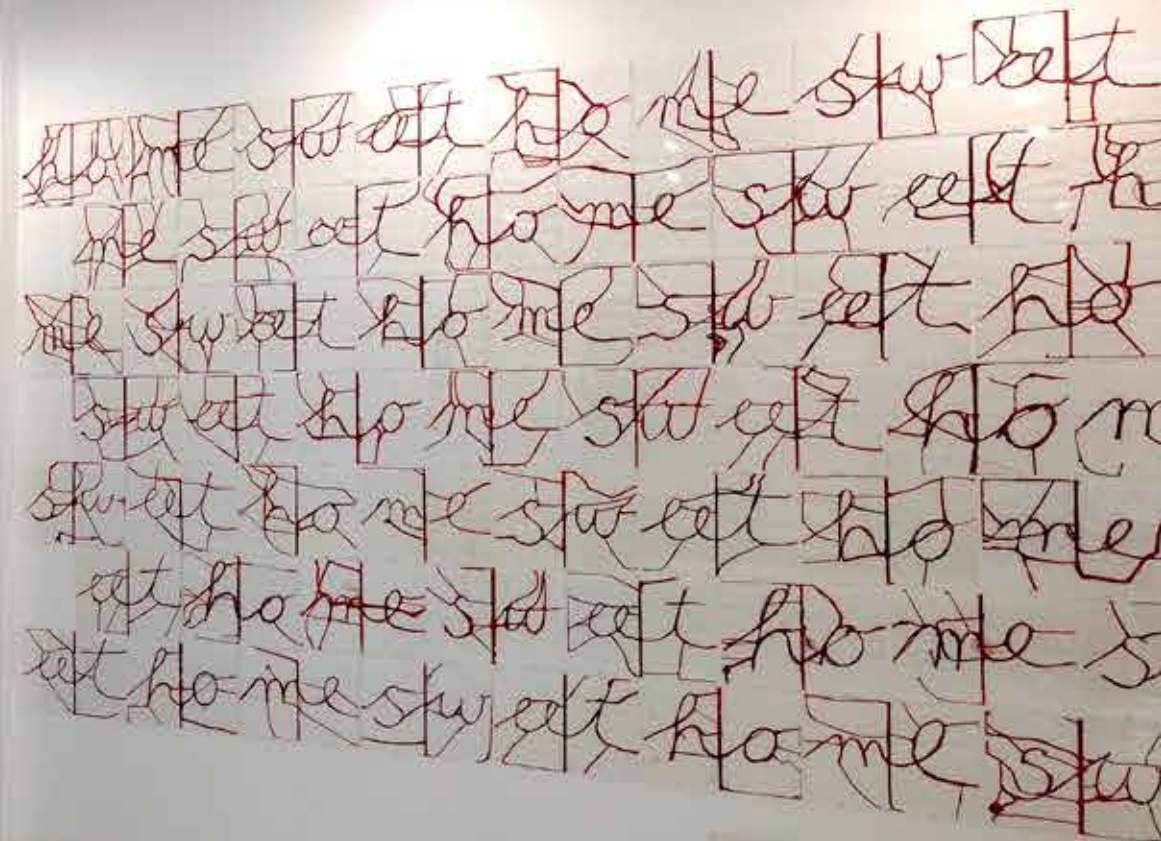 home sweet home sweet
me sweet home sweet h
me sweet home sweet ho
sweet home sweet hom
sweet home sweet home
eet home sweet home s
eet home sweet home sw